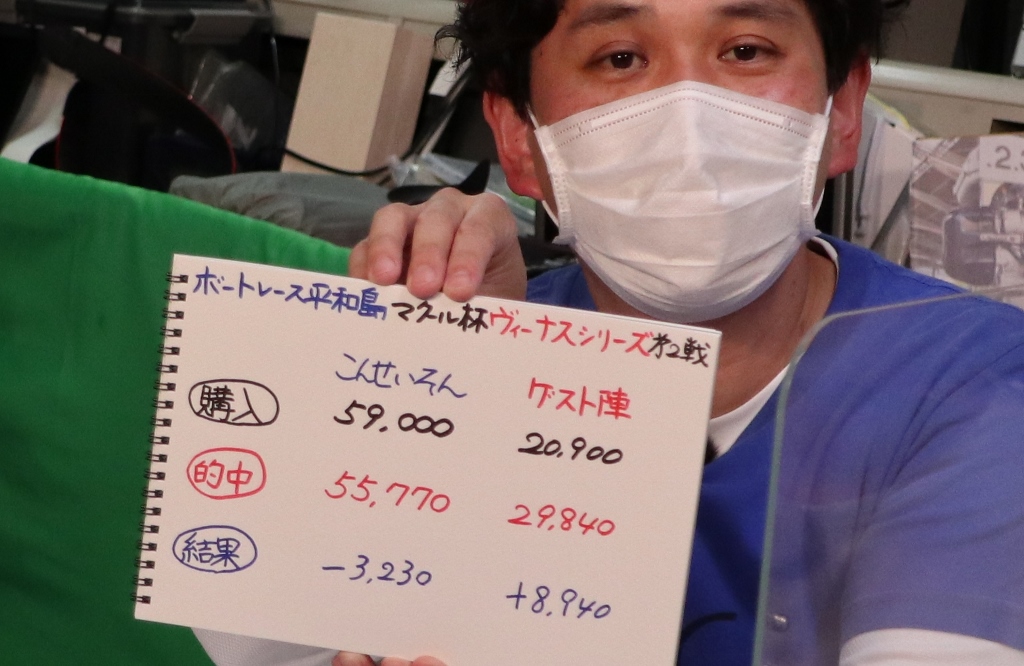 ボートレース平和島マクール杯ヴィーナスシリーズ第2戦
こんせいそん ゲスト陣
購入 59,000 20,900
的中 55,770 29,840
結果 -3,230 +8,940
.2.